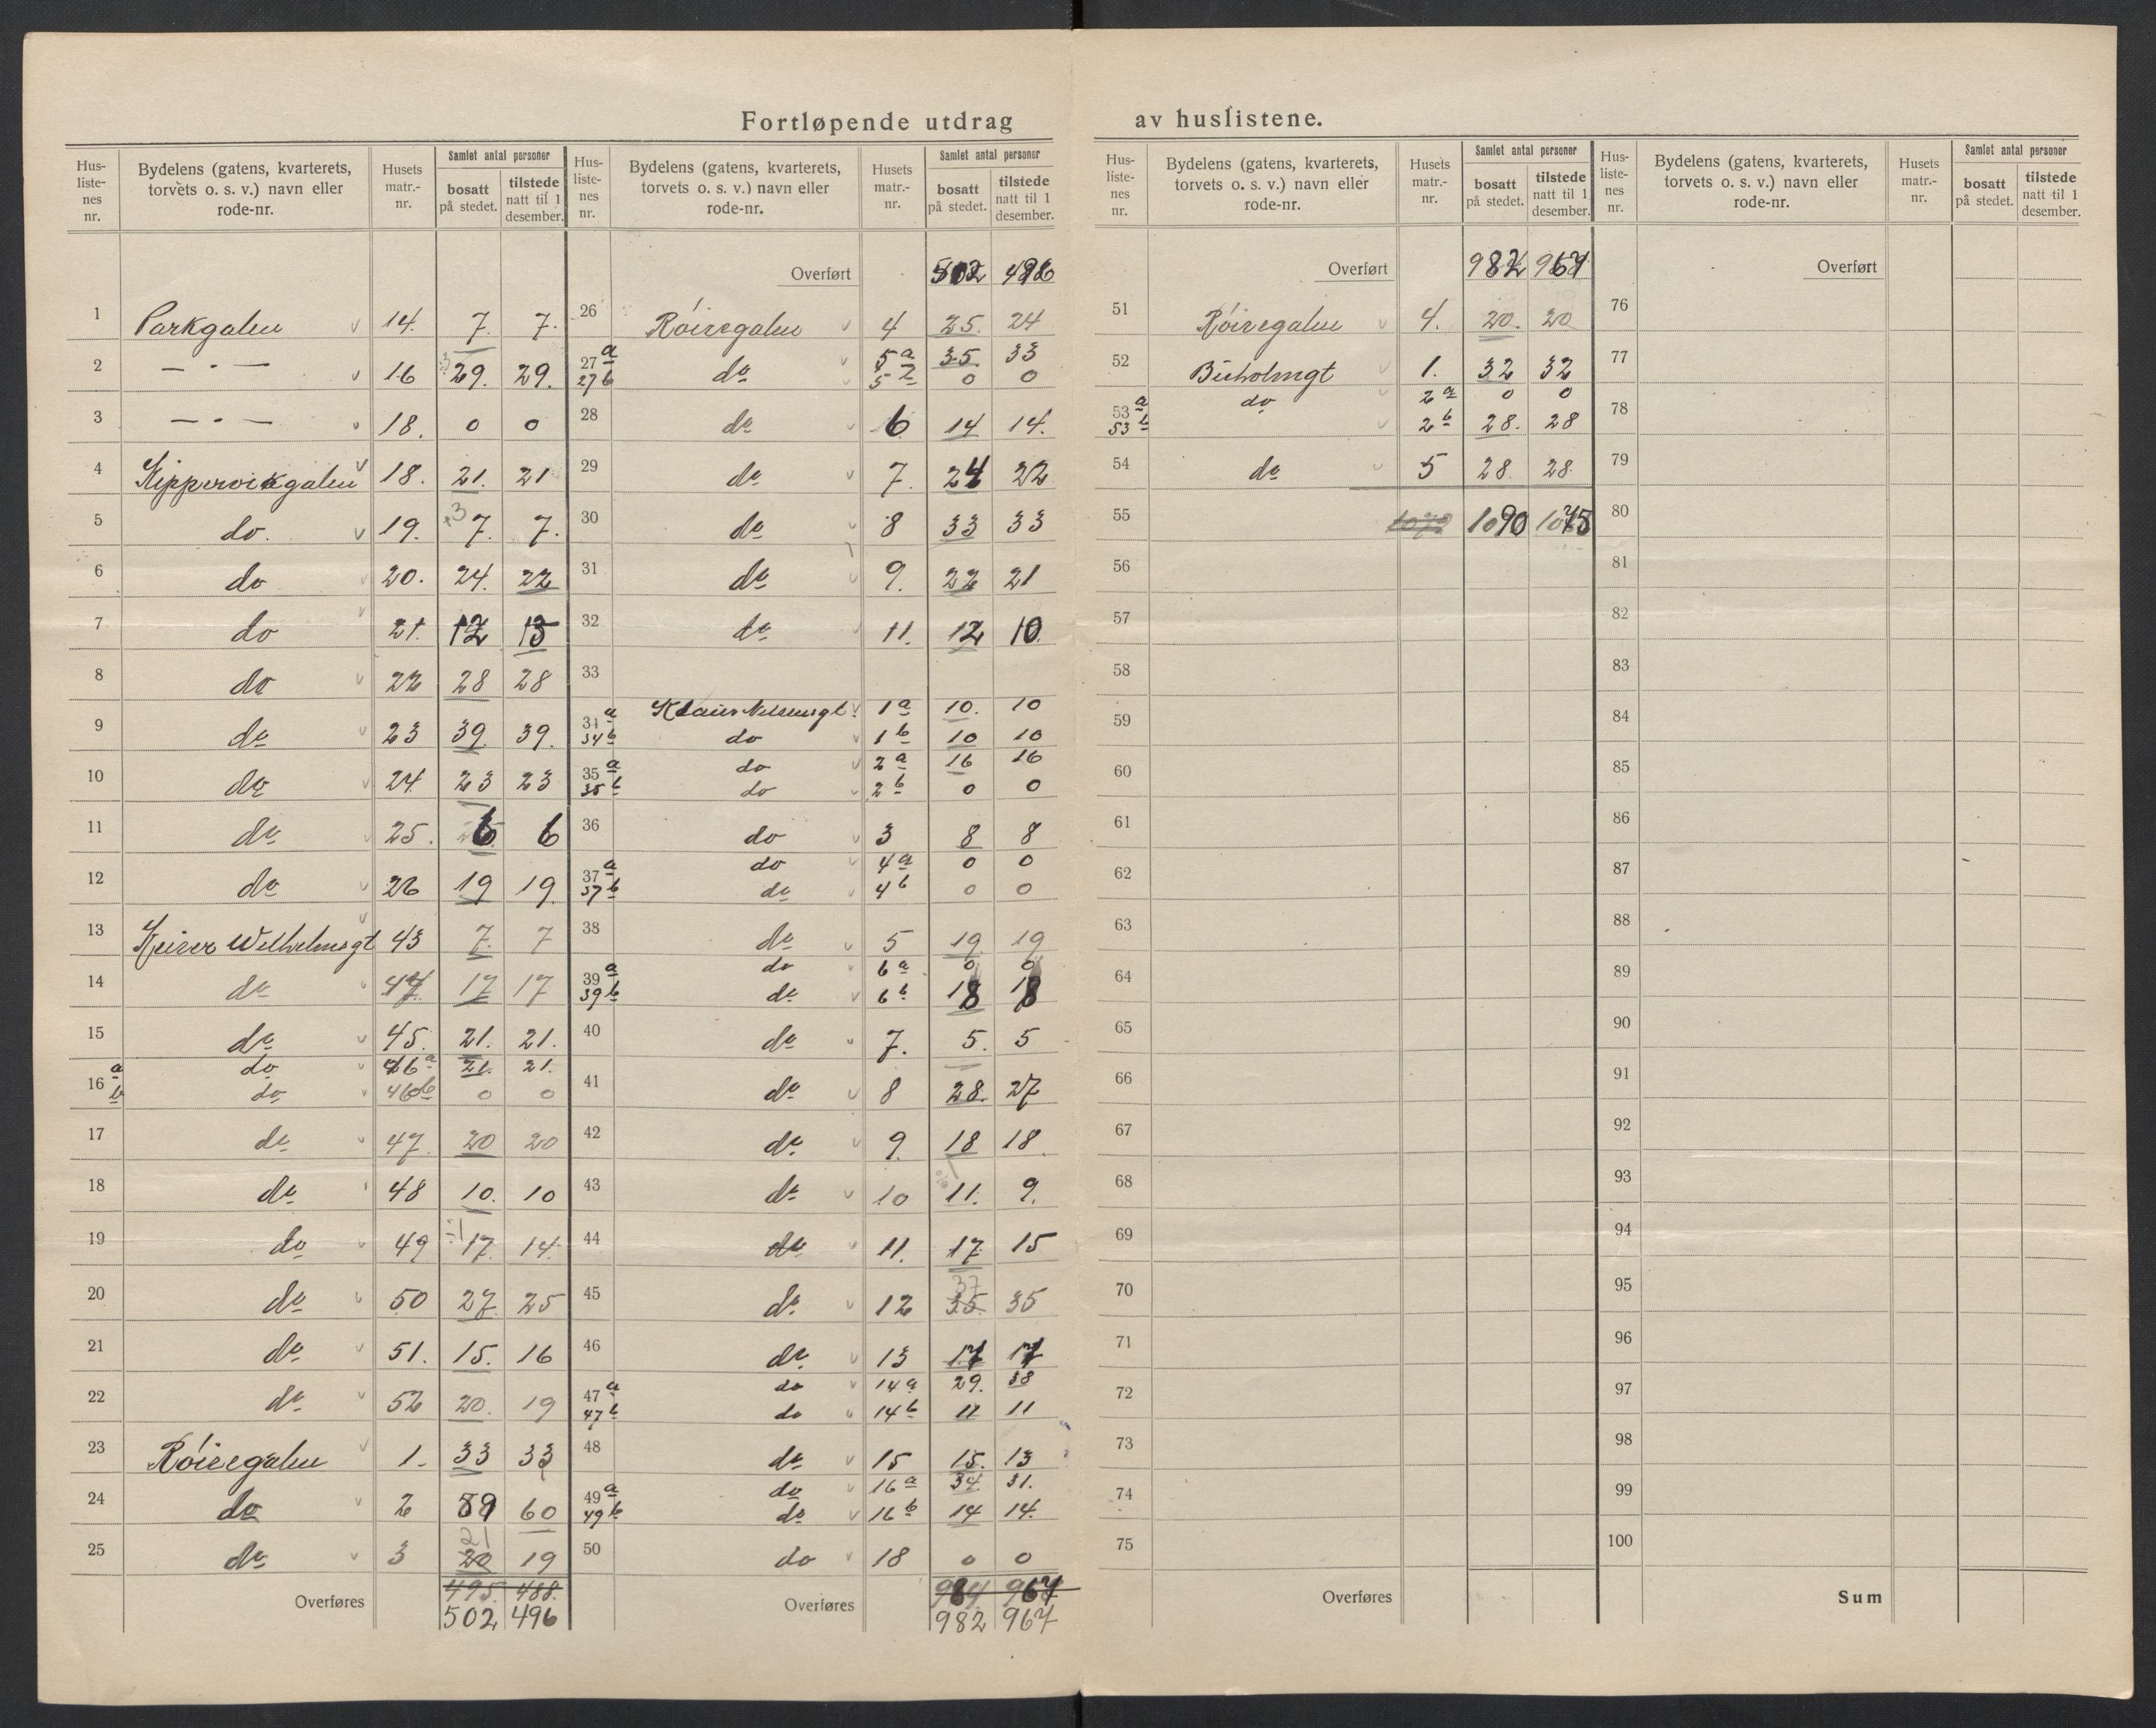 Fortløpende utdrag av huslistene.
Hus-listenes nr. Bydelens (gatens, kvarterets, torvets o. s. v.) navn eller rode-nr. Husets matr.-nr. Samlet antal personer bosatt på stedet. tilstede natt til 1 desember.
1 Parkgaten 14. 7. 7.
2 — " — 16 29. 29.
3 — " — 18. 0 0
4 Skippervikgaten 18. 21. 21
5 do. 19. +3 7. 7.
6 do 20. 24. 22
7 do 21. 12 13
8 do 22 28 28
9 do 23 39. 39.
10 do 24 23 23
11 do 25. 6 6
12 do 26 19 19.
13 Keiser Wilhelmsgt 43 7. 7
14 do 44. 17 17
15 do 45. 21. 21.
16 a do 46 a 21. 21.
b do 46 b 0 0
17 do 47. 20 20
18 do 48 10. 10
19 do 49 ÷1 17. 14.
20 do 50 27. 25
21 do 51. 15. 16
22 do 52 20. 19
23 Røiregaten 1. 33 33
24 do 2 59 60
25 do 3 21 20 19
Overføres 495. 488.
502 496
Hus-listenes nr. Bydelens (gatens, kvarterets, torvets o. s. v.) navn eller rode-nr. Husets matr.-nr. Samlet antal personer bosatt på stedet. tilstede natt til 1 desember.
Overført 502 496
26 Røiregaten 4 25. 24
27 a do 5 a 35. 33
27 b 0 0
28 do 6 14 14.
29 do 7. 24 22
30 do 8 33 33
31 do 9. 22 21
32 do 11. 12 10.
33
34 a Klaus Nilsensgt 1 a 10. 10
34 b do 1 b 10 10
35 a do 2 a 16 16
35 b do 2 b 0 0
36 do 3 8 8
37 a do 4 a 0 0
37 b do 4 b 0 0
38 do 5 19 19
39 a do 6 a 0 0
39 b do 6 b 18 18
40 do 7. 5. 5
41 do 8 28. 27
42 do 9. 18 18.
43 do 10 11. 9.
44 do 11. 17 15
45 do 12 37 35. 35
46 do 13 17 17
47 a do 14 a 29. 38
47 b do 14 b 11 11
48 do 15 15. 13
49 a do 16 a 34. 31.
49 b do 16 b 14 14.
50 do 18 0 0
Overføres 984 967
982 967
Hus-listenes nr. Bydelens (gatens, kvarterets, torvets o. s. v.) navn eller rode-nr. Husets matr.-nr. Samlet antal personer bosatt på stedet. tilstede natt til 1 desember.
Overført 982 967
51 Røiregaten 4. 20. 20
52 Buholmgt 1. 32 32
53 a do 2 a 0 0
53 b 2 b 28. 28
54 do 5 28 28
55 1090 1075
56
57
58
59
60
61
62
63
64
65
66
67
68
69
70
71
72
73
74
75
Overføres
Hus-listenes nr. Bydelens (gatens, kvarterets, torvets o. s. v.) navn eller rode-nr. Husets matr.-nr. Samlet antal personer bosatt på stedet. tilstede natt til 1 desember.
Overført
76
77
78
79
80
81
82
83
84
85
86
87
88
89
90
91
92
93
94
95
96
97
98
99
100
Sum